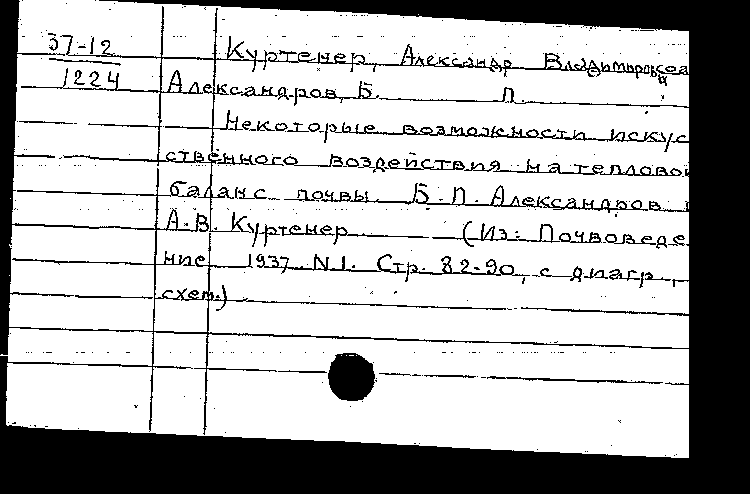 37-12
1224
Куртенер, Александр Владимирович
Александров, Б. П.
Некоторые возможности искус
ственного воздействия на тепловой
баланс почвы. Б. П. Александров
А. В. Куртенер (Из: Почвоведе
ние 1937 N1. Стр. 82-90, с диагр.,
схем.)